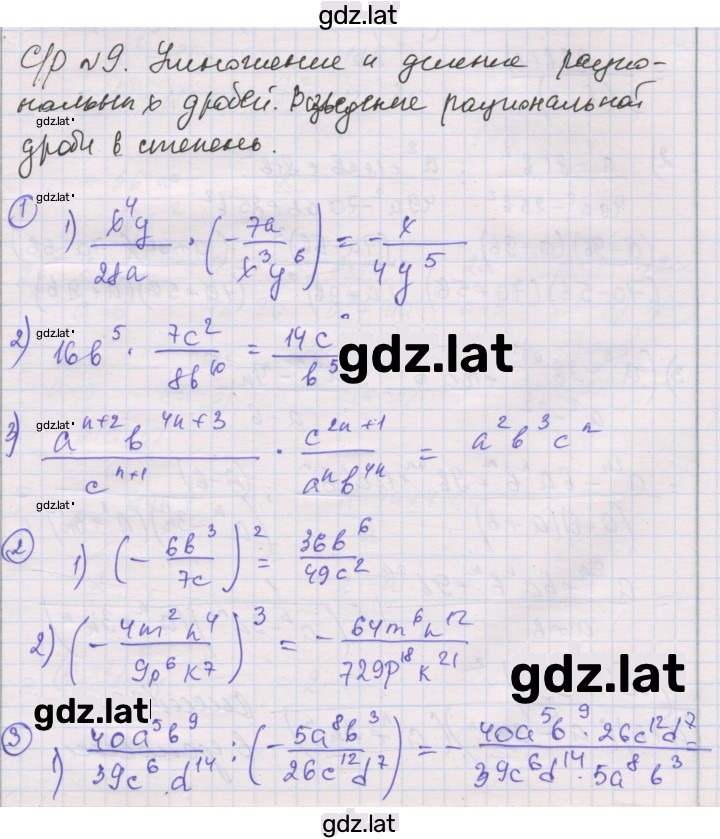 gdz.lat
С/Р №9. Умножение и деление рацио-
нальных дробей. Возведение рациональной
gdz.lat
дроби в степень.
gdz.lat
① 1) x⁴y/28a · (-7a/x³y⁶) = -x/4y⁵
gdz.lat
2) 16b⁵ · 7c²/8b¹⁰ = 14c²/b⁵
gdz.lat
gdz.lat
3) aⁿ⁺²b⁴ⁿ⁺³/cⁿ⁺¹ · c²ⁿ⁺¹/aⁿb⁴ⁿ = a²b³cⁿ
gdz.lat
② 1) (-6b³/7c)² = 36b⁶/49c²
2) (-4m²n⁴/9p⁶k⁷)³ = -64m⁶n¹²/729p¹⁸k²¹
gdz.lat
gdz.lat
③ 1) 40a⁵b⁹/39c⁶d¹⁴ : (-5a⁸b³/26c¹²d⁷) = -40a⁵b⁹·26c¹²d⁷/39c⁶d¹⁴·5a⁸b³ =
gdz.lat